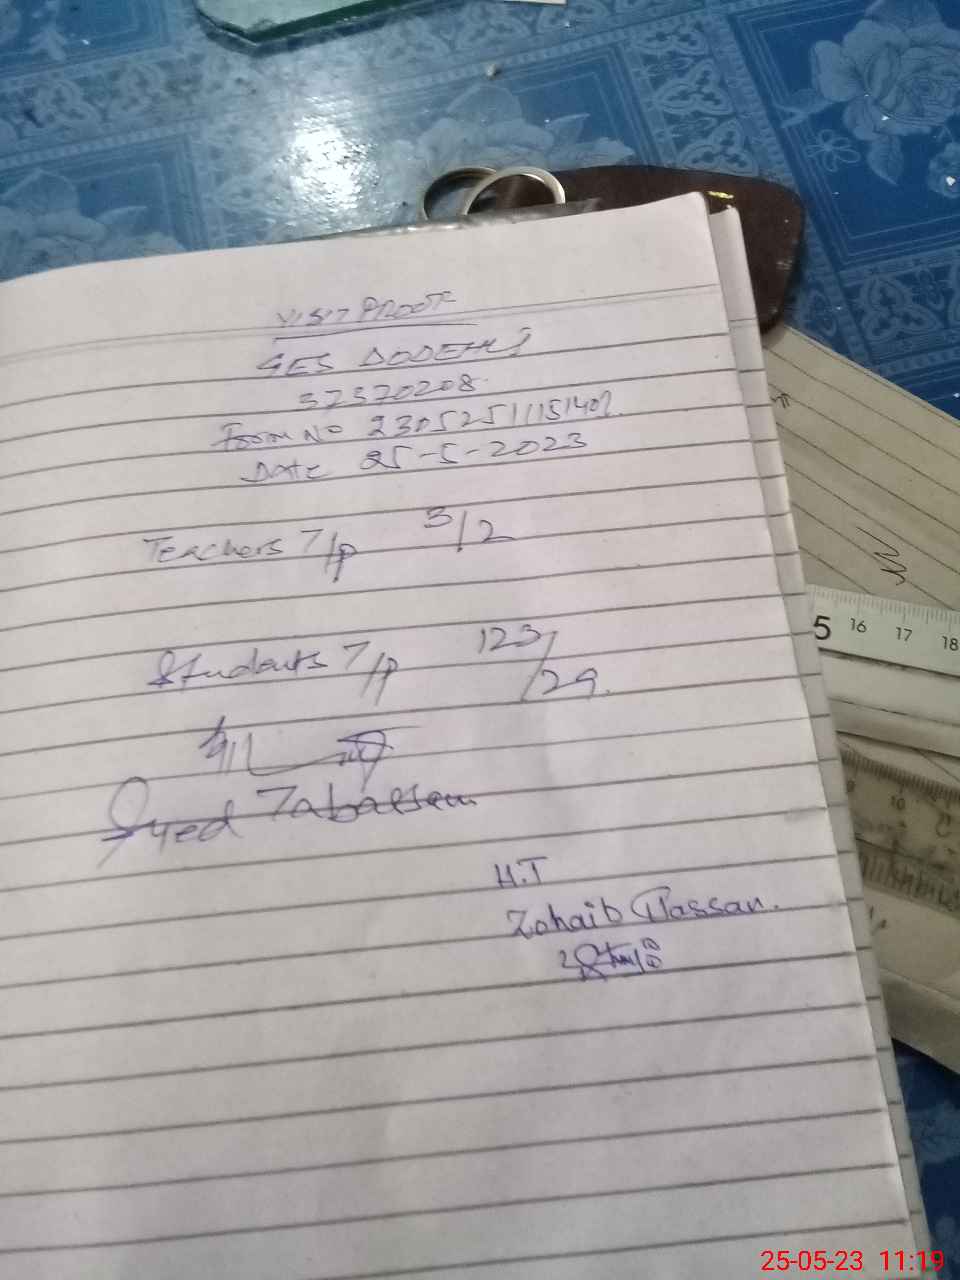 VISIT PROOF
GES DODEHI
37370208
Form No 23052511151409
Date 25-5-2023
Teachers T/P 3/2
Students T/P 123/29.
Syed Tabassam
H.T
Zohaib Hassan.
5 16 17 18
10
25-05-23 11:19